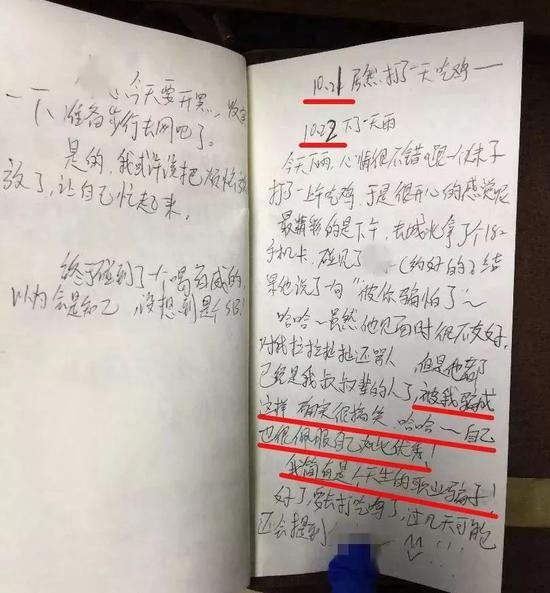 今天要开黑，收拾
一下、准备步行去网吧了。
是的，我或许该把烦恼放
放了，让自己忙起来。
终于碰到了个喝百威的，
以为会是知己，没想到是个SB！
10.21 居然打了一天吃鸡——
10.22 下了一天雨
今天下雨，心情很不错，跟一个妹子
打了一上午吃鸡，于是很开心的感觉呢
最精彩的是下午，去城北拿了个182
手机卡，碰见了（约好的）结
果他说了句“被你骗怕了”～
哈哈～虽然他见面时很不友好，
对我拉拉扯扯还骂人 但是他都
已经是我叔叔辈的人了，被我骗成
这样 确实很搞笑．哈哈～自己
也很佩服自己如此优秀！
我简直是个天生的职业骗子！
好了，要去打吃鸡了，过几天可能
还会提到